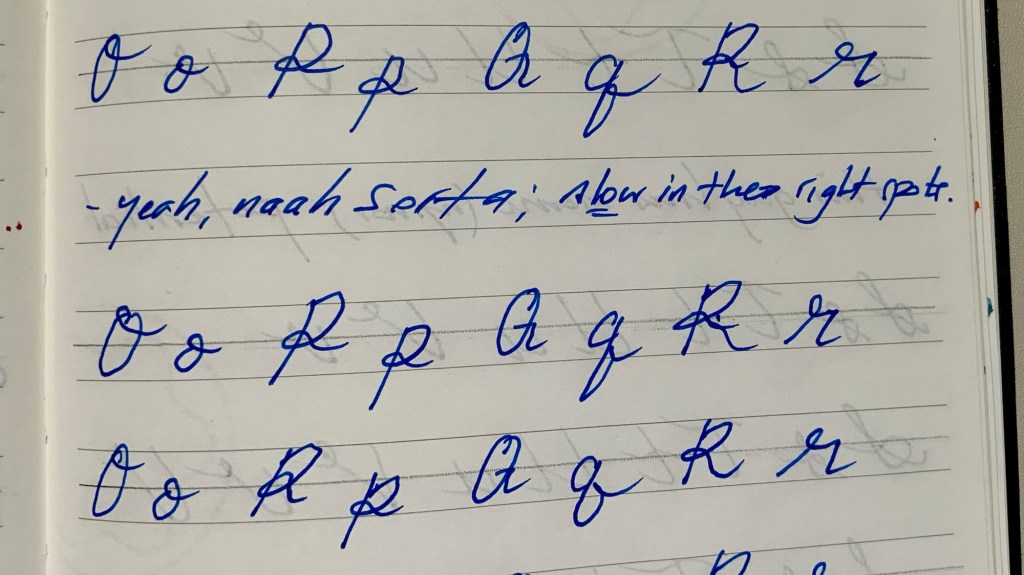 O o P p Q q R r
- yeah, naah Sorta; slow in the right spots.
O o P p Q q R r
O o P p Q q R r
R r